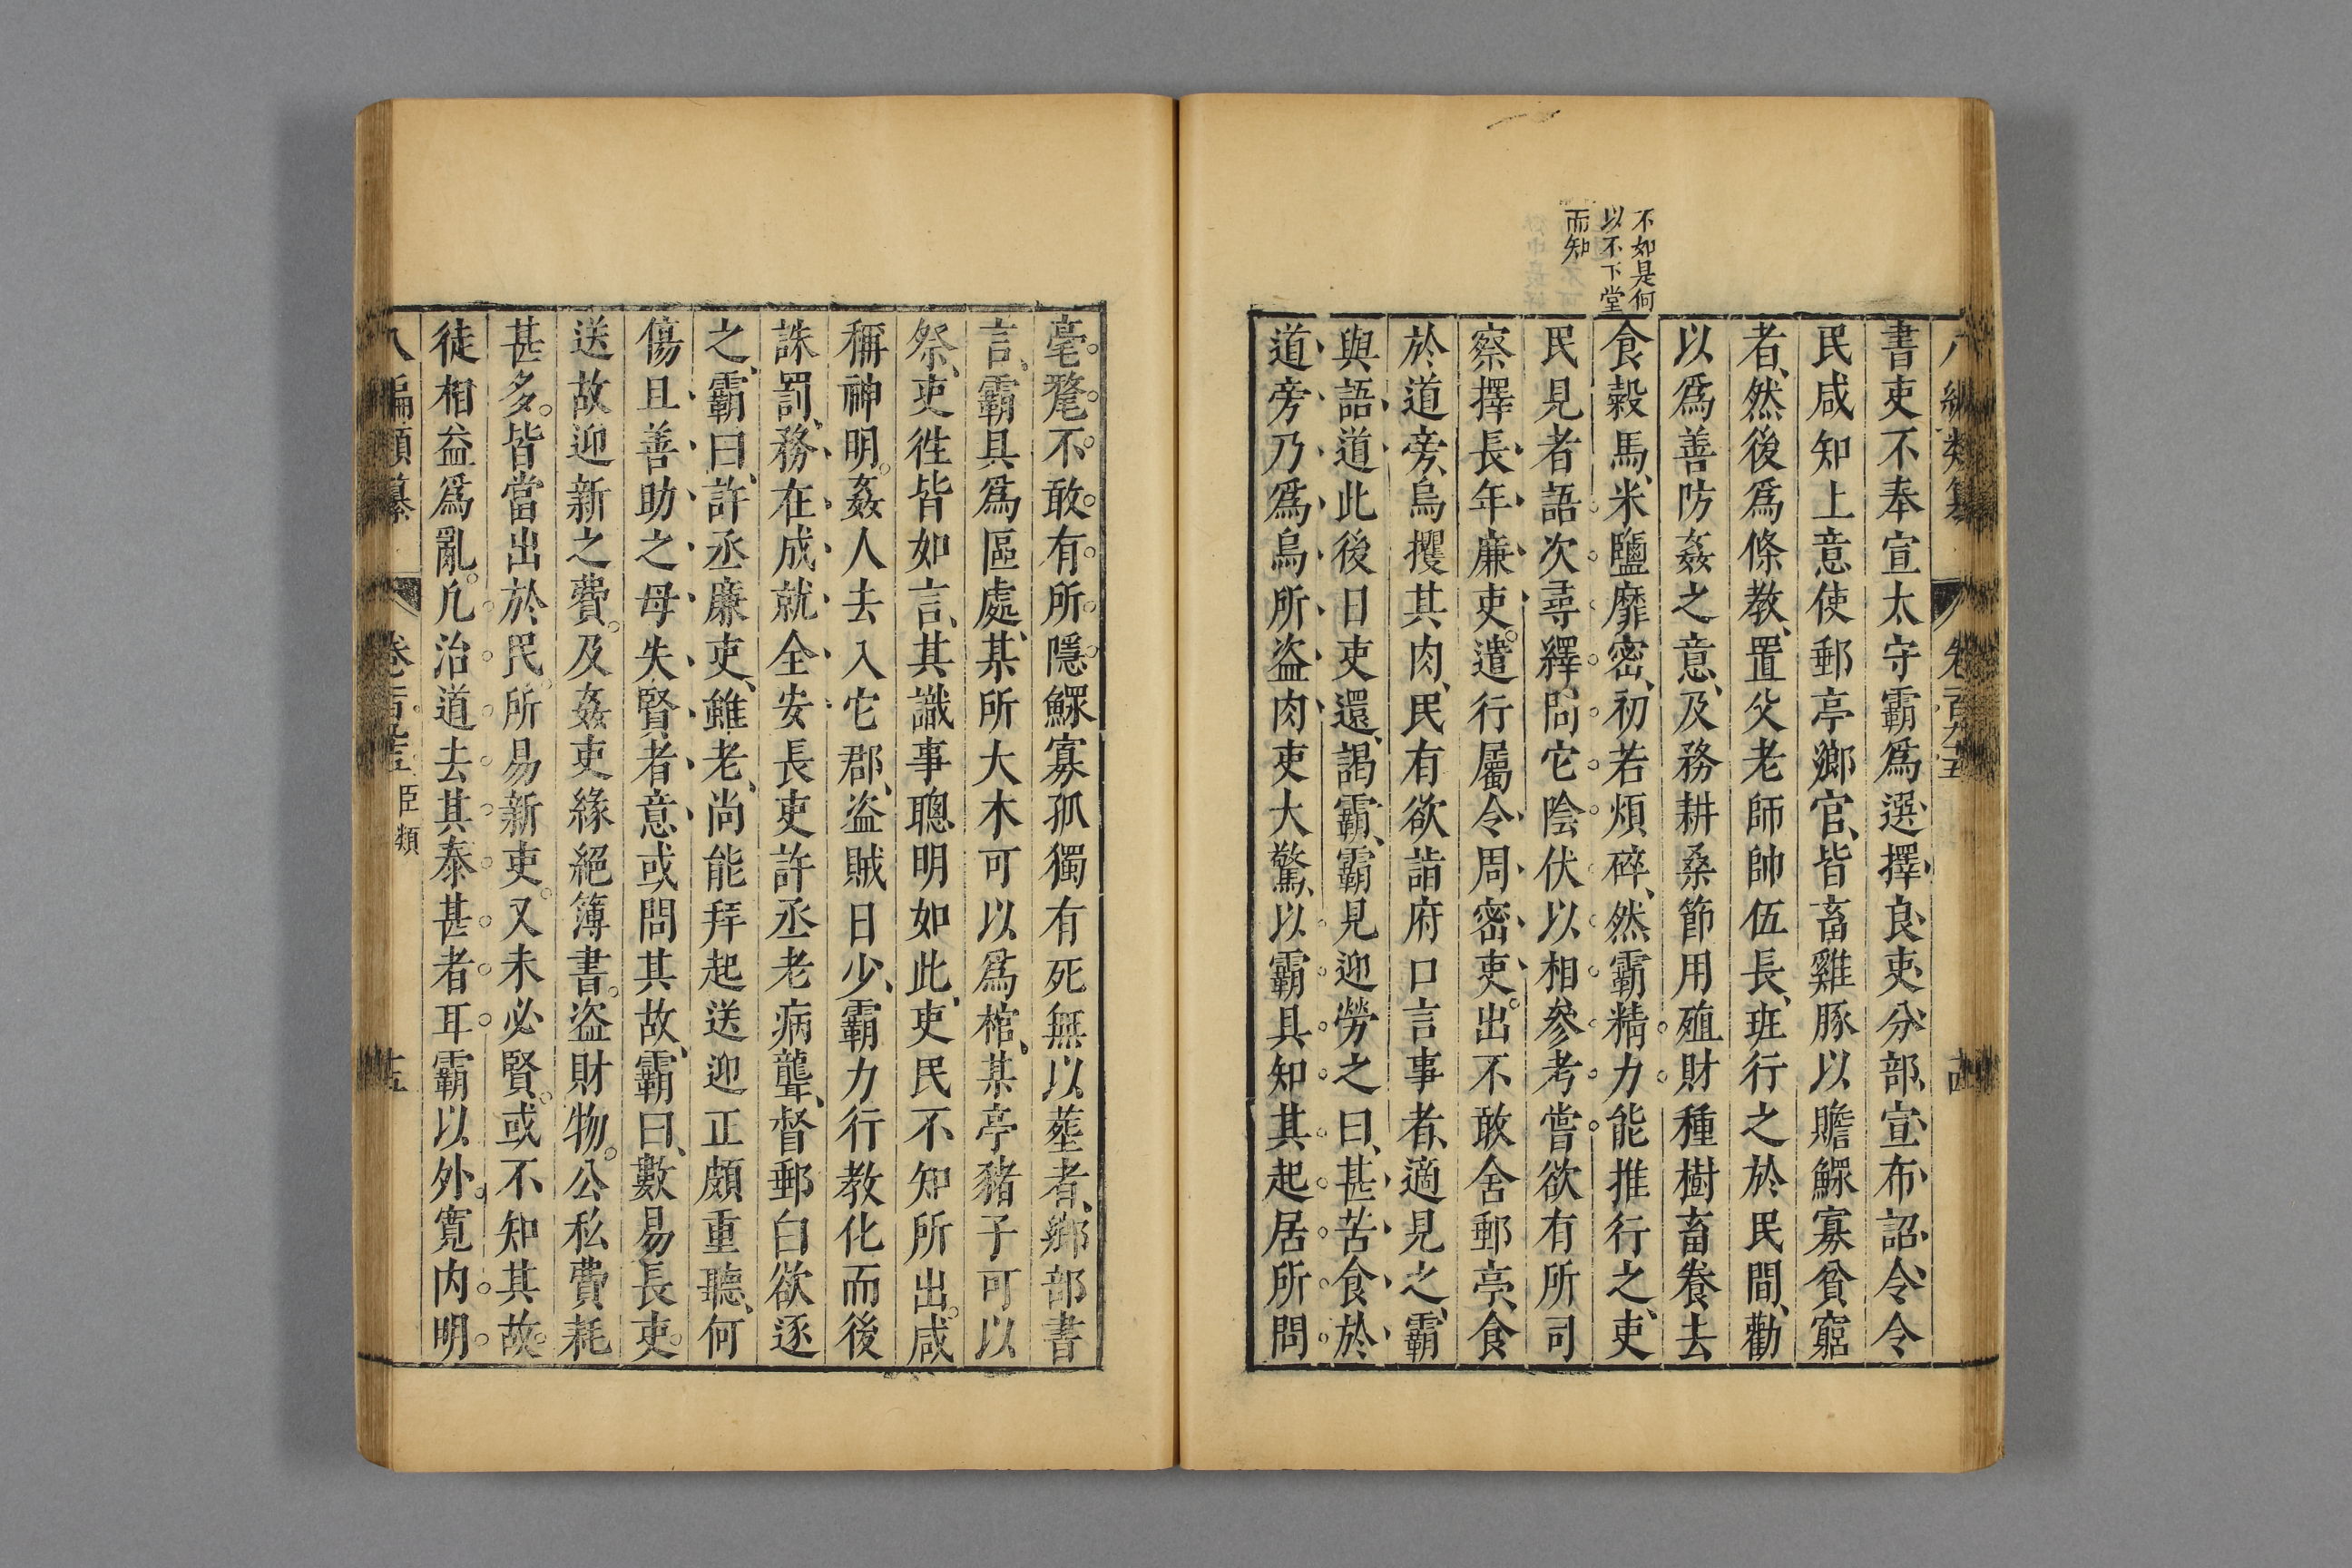 不如是何
以不下堂
而知
書吏不奉宣太守霸爲選擇良吏分部宣布詔令令
民咸知上意使郵亭鄉官皆畜雞豚以贍鰥寡貧窮
者然後爲條教置父老師帥伍長班行之於民間勸
以爲善防姦之意及務耕桑節用殖財種樹畜養去
食穀馬米鹽靡密初若煩碎然霸精力能推行之吏
民見者語次尋繹問它陰伏以相參考嘗欲有所司
察擇長年廉吏遣行屬令周密吏出不敢舍郵亭食
於道旁烏攫其肉民有欲詣府口言事者適見之霸
與語道此後日吏還謁霸霸見迎勞之曰甚苦食於
道旁乃爲烏所盜肉吏大驚以霸具知其起居所問
毫氂不敢有所隱鰥寡孤獨有死無以葬者鄉部書
言霸具爲區處某所大木可以爲棺某亭豬子可以
祭吏徃皆如言其識事聰明如此吏民不知所出咸
稱神明姦人去入它郡盜賊日少霸力行教化而後
誅罰務在成就全安長吏許丞老病聾督郵白欲逐
之霸曰許丞廉吏雖老尚能拜起送迎正頗重聽何
傷且善助之毋失賢者意或問其故霸曰數易長吏
送故迎新之費及姦吏緣絕簿書盜財物公私費耗
甚多皆當出於民所易新吏又未必賢或不知其故
徒相益爲亂凡治道去其泰甚者耳霸以外寬内明
八編類纂
臣類